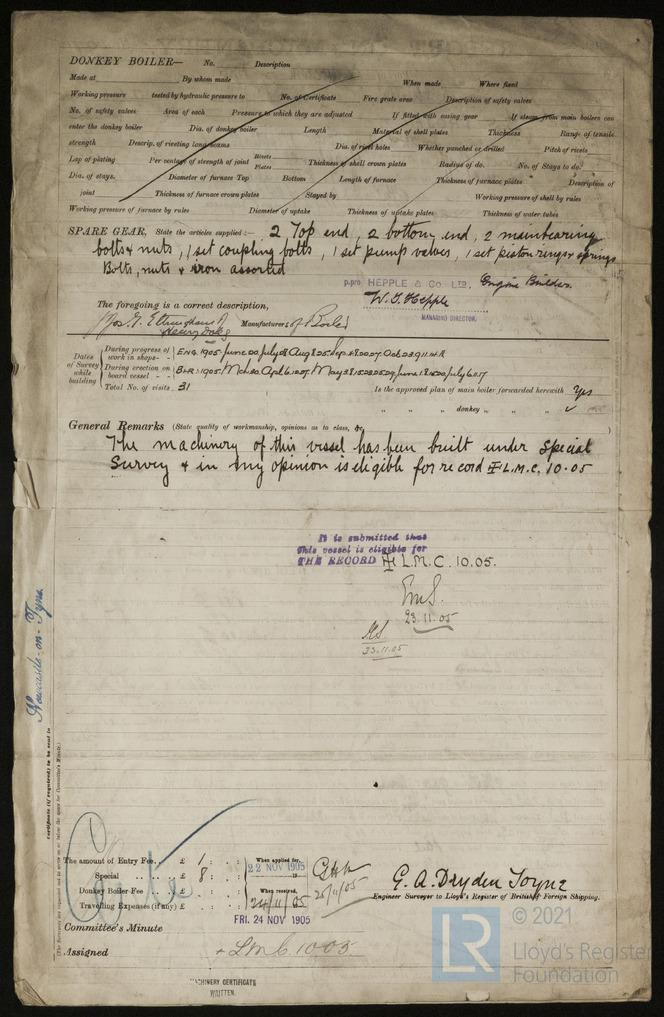 DONKEY BOILER— No. Description
Made at By whom made When made Where fixed
Working pressure tested by hydraulic pressure to No. of Certificate Fire grate area Description of safety valves
No. of safety valves Area of each Pressure to which they are adjusted If fitted with easing gear If steam from main boilers can
enter the donkey boiler Dia. of donkey boiler Length Material of shell plates Thickness Range of tensile
strength Descrip. of riveting long. seams Dia. of rivet holes Whether punched or drilled Pitch of rivets
Lap of plating Per centage of strength of joint Rivets Plates Thickness of shell crown plates Radius of do. No. of Stays to do.
Dia. of stays. Diameter of furnace Top Bottom Length of furnace Thickness of furnace plates Description of
joint Thickness of furnace crown plates Stayed by Working pressure of shell by rules
Working pressure of furnace by rules Diameter of uptake Thickness of uptake plates Thickness of water tubes
SPARE GEAR. State the articles supplied:— 2 Top end, 2 bottom end, 2 main bearing
bolts & nuts, 1 set coupling bolts, 1 set pump valves, 1 set piston rings & springs
Bolts, nuts & iron assorted
p.pro HEPPLE & Co. LTD. Engine Builders.
W. T. Hepple
MANAGING DIRECTOR.
The foregoing is a correct description,
Manufacturer of Boiler
Dates of Survey while building
During progress of work in shops - -
During erection on board vessel - -
Total No. of visits 31
Is the approved plan of main boiler forwarded herewith Yes
" " " donkey " " "
General Remarks (State quality of workmanship, opinions as to class, &c.
The machinery of this vessel has been built under Special
Survey & in my opinion is eligible for record L.M.C. 10-05
It is submitted that
this vessel is eligible for
THE RECORD L.M.C. 10.05.
23.11.05
23.11.05
Newcastle-on-Tyne
Certificate (if required) to be sent to
The amount of Entry Fee.. £ 1 : :
Special .. .. .. £ 8 : :
Donkey Boiler Fee .. .. £ : :
Travelling Expenses (if any) £ : :
When applied for,
22 NOV 1905
When received,
24/11/05
25/11/05
G. A. Dryden Toyne
Engineer Surveyor to Lloyd's Register of British & Foreign Shipping.
Committee's Minute
FRI. 24 NOV 1905
Assigned + LMC 10 05
MACHINERY CERTIFICATE
WRITTEN.
© 2021
LR
Lloyd's Register
Foundation